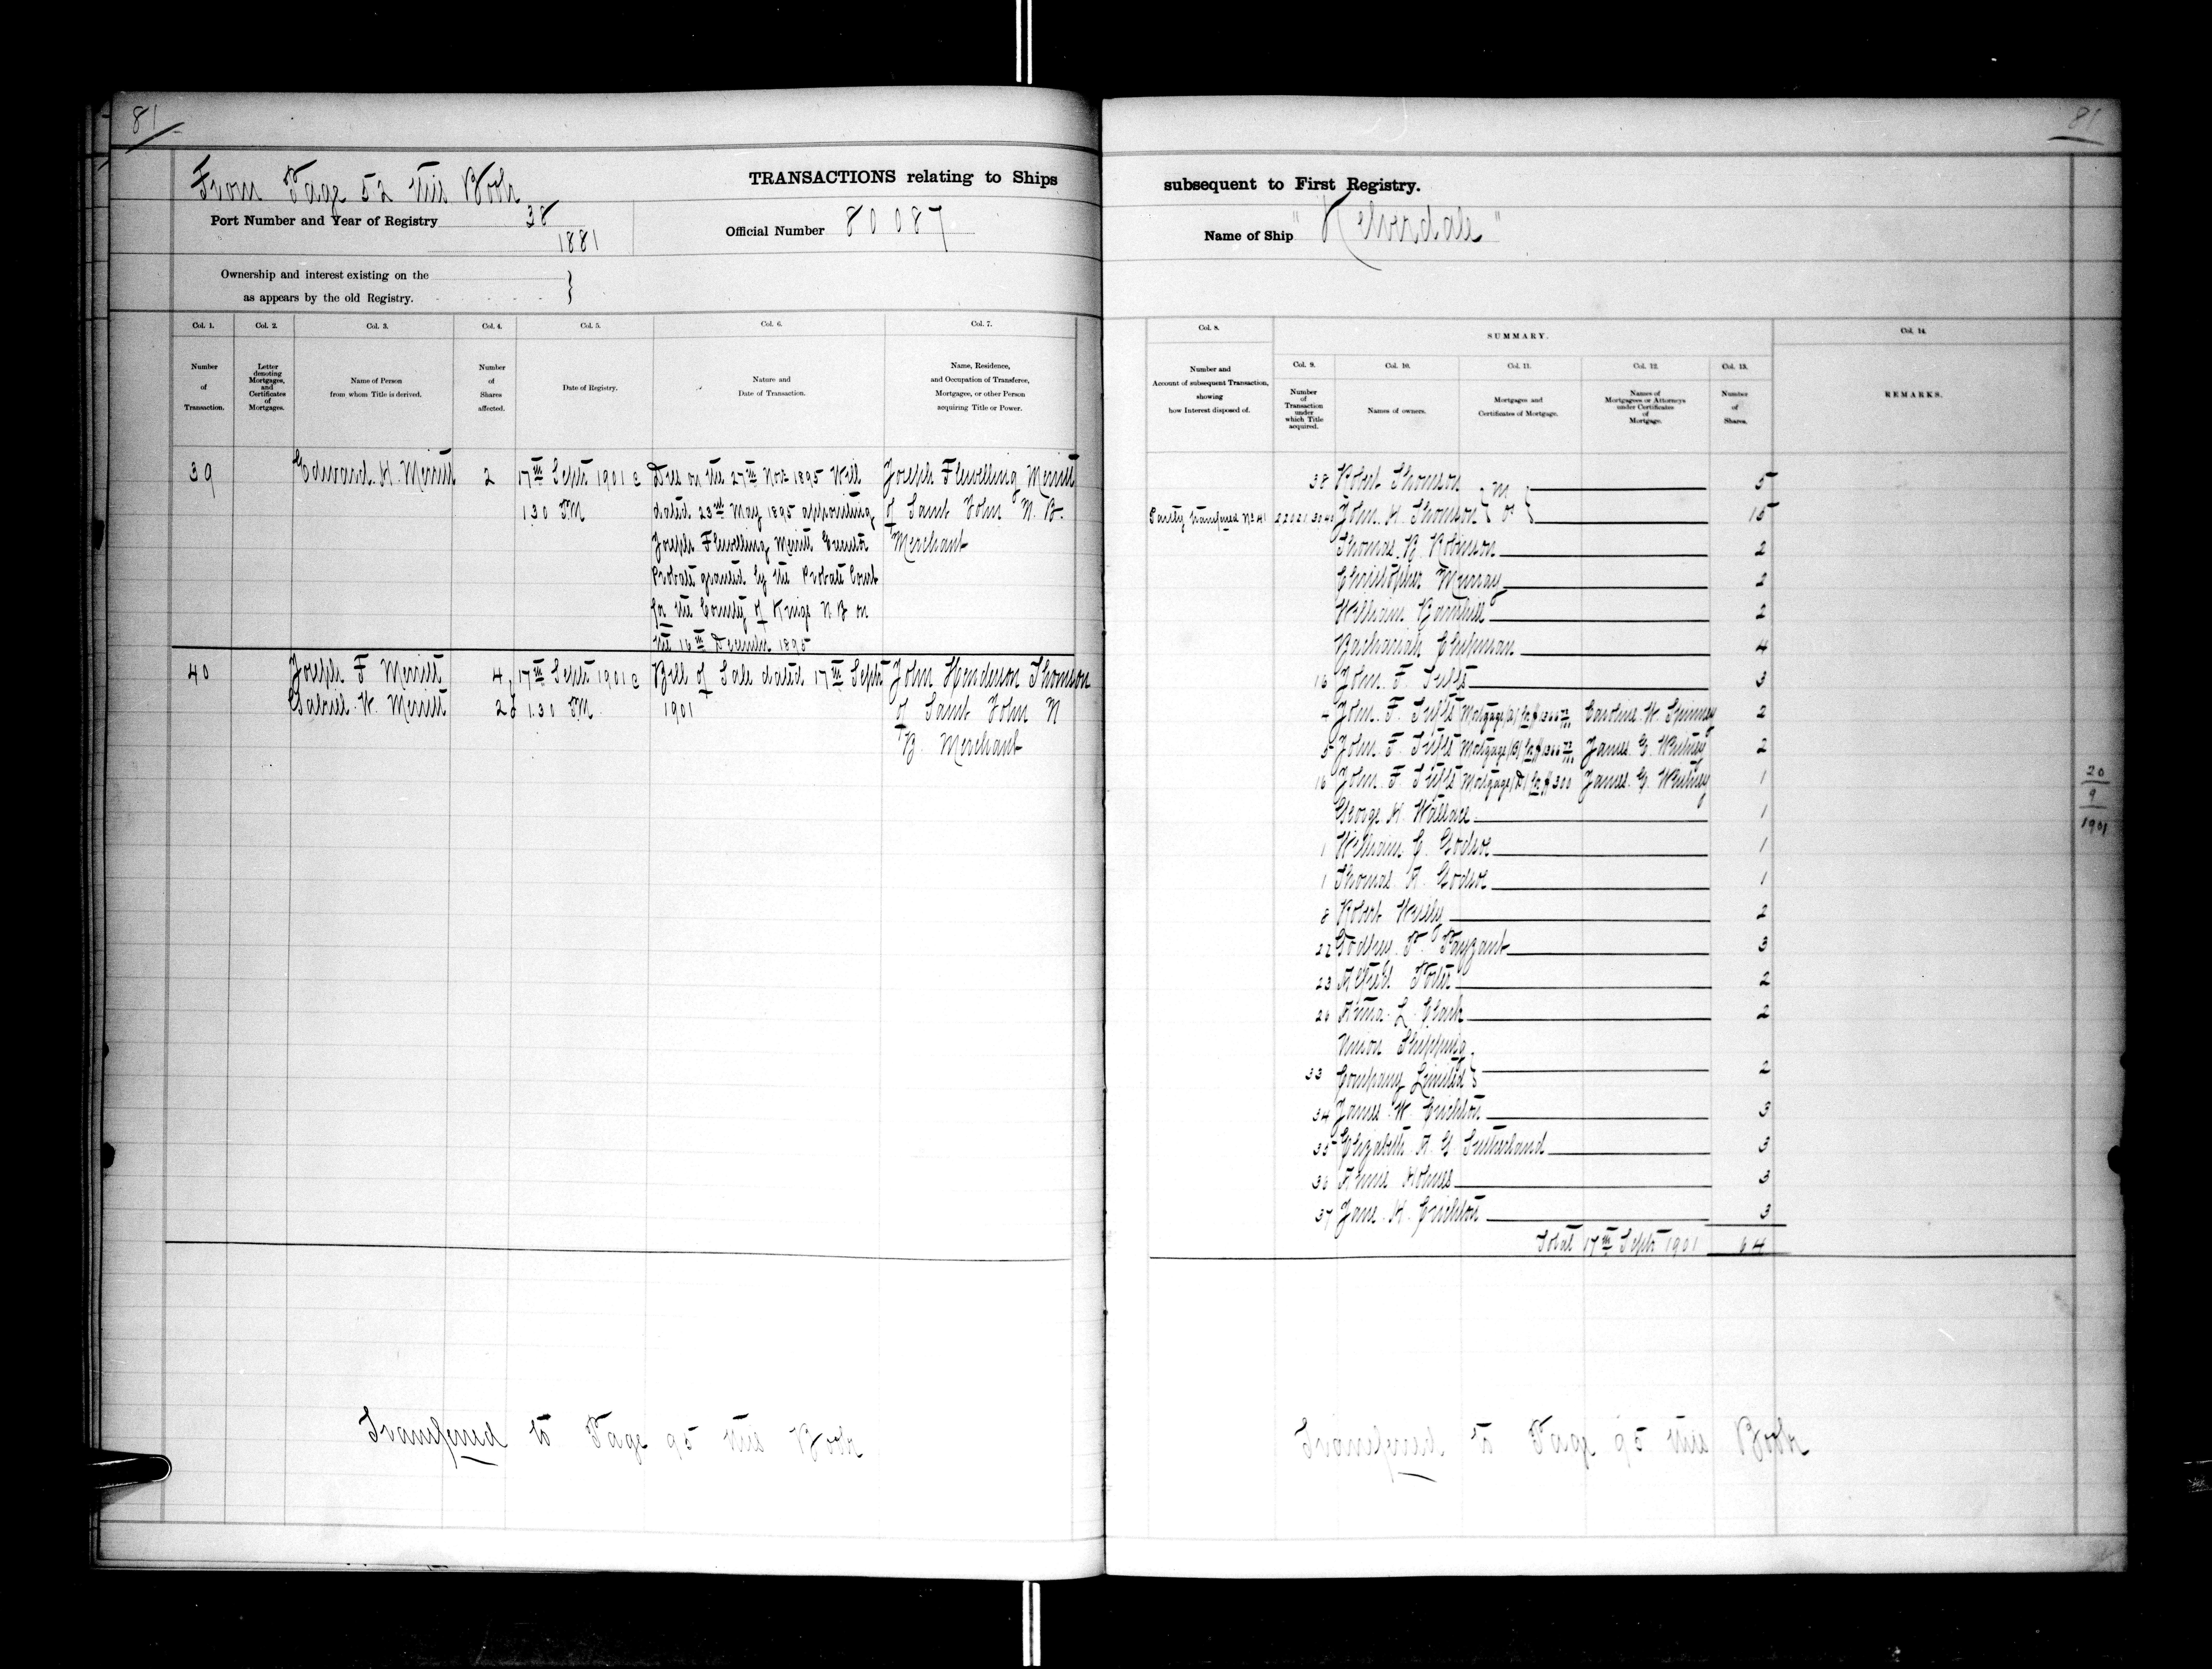 81
From Page 52 this Book
TRANSACTIONS relating to Ships
Port Number and Year of Registry 38
1881
Official Number 80087
Ownership and interest existing on the
as appears by the old Registry.
Col. 1. Col. 2. Col. 3. Col. 4. Col. 5. Col. 6. Col. 7.
Number of Transaction.
Letter denoting Mortgages, and Certificates of Mortgages.
Name of Person from whom Title is derived.
Number of Shares affected.
Date of Registry.
Nature and Date of Transaction.
Name, Residence, and Occupation of Transferee, Mortgagee, or other Person acquiring Title or Power.
39 Edward. H. Merritt 2 17th Septr 1901 @ Died on the 27th Nov 1895 Will Joseph Flewelling Merritt
1.30 PM dated 23rd May 1895 appointing of Saint John N. B.
Joseph Flewelling Merritt Executor Merchant
Probate granted by the Probate Court
for the County of Kings N B on
the 16th December 1895
40 Joseph F Merritt 4 17th Septr 1901 @ Bill of Sale dated 17th Septr John Henderson Thomson
Gabriel. W. Merritt 2 1.30 PM 1901 of Saint John N
B. Merchant
Transferred to Page 95 this Book
81
subsequent to First Registry.
Name of Ship "Kelverdale"
Col. 8.
Number and Account of subsequent Transaction, showing how Interest disposed of.
SUMMARY.
Col. 9. Col. 10. Col. 11. Col. 12. Col. 13.
Number of Transaction under which Title acquired.
Names of owners.
Mortgages and Certificates of Mortgage.
Names of Mortgagees or Attorneys under Certificates of Mortgage.
Number of Shares.
Col. 14.
REMARKS.
38 Robert Thomson 5
Partly transferred No 41 John. H. Thomson 15
Thomas. B. Robinson 2
Christopher Murray 2
William Barnhill 2
Zachariah Chipman 4
16 John. F. Tufts 3
4 John. F. Tufts Mortgage (A) for $ Caroline. W. Spinney 2
5 John. F. Tufts Mortgage (B) for $ James. G. Whitney 2
16 John. F. Tufts Mortgage (D) for $300 James. G. Whitney 1
George. H. Wallace 1
1 William. C. Godsoe 1
1 Thomas. A. Godsoe 1
8 Robert Weilly 2
22 Godfrey. P. Payzant 3
23 Alfred Porter 2
26 Anna. L. Clark 2
Union Shipping
33 Company Limited 2
34 James. W. Crichton 3
35 Elizabeth. A. G Sutherland 3
36 Annie Holmes 3
37 Jane. H. Crichton 3
Total 17th Septr 1901 64
20
9
1901
Transferred to Page 95 this Book